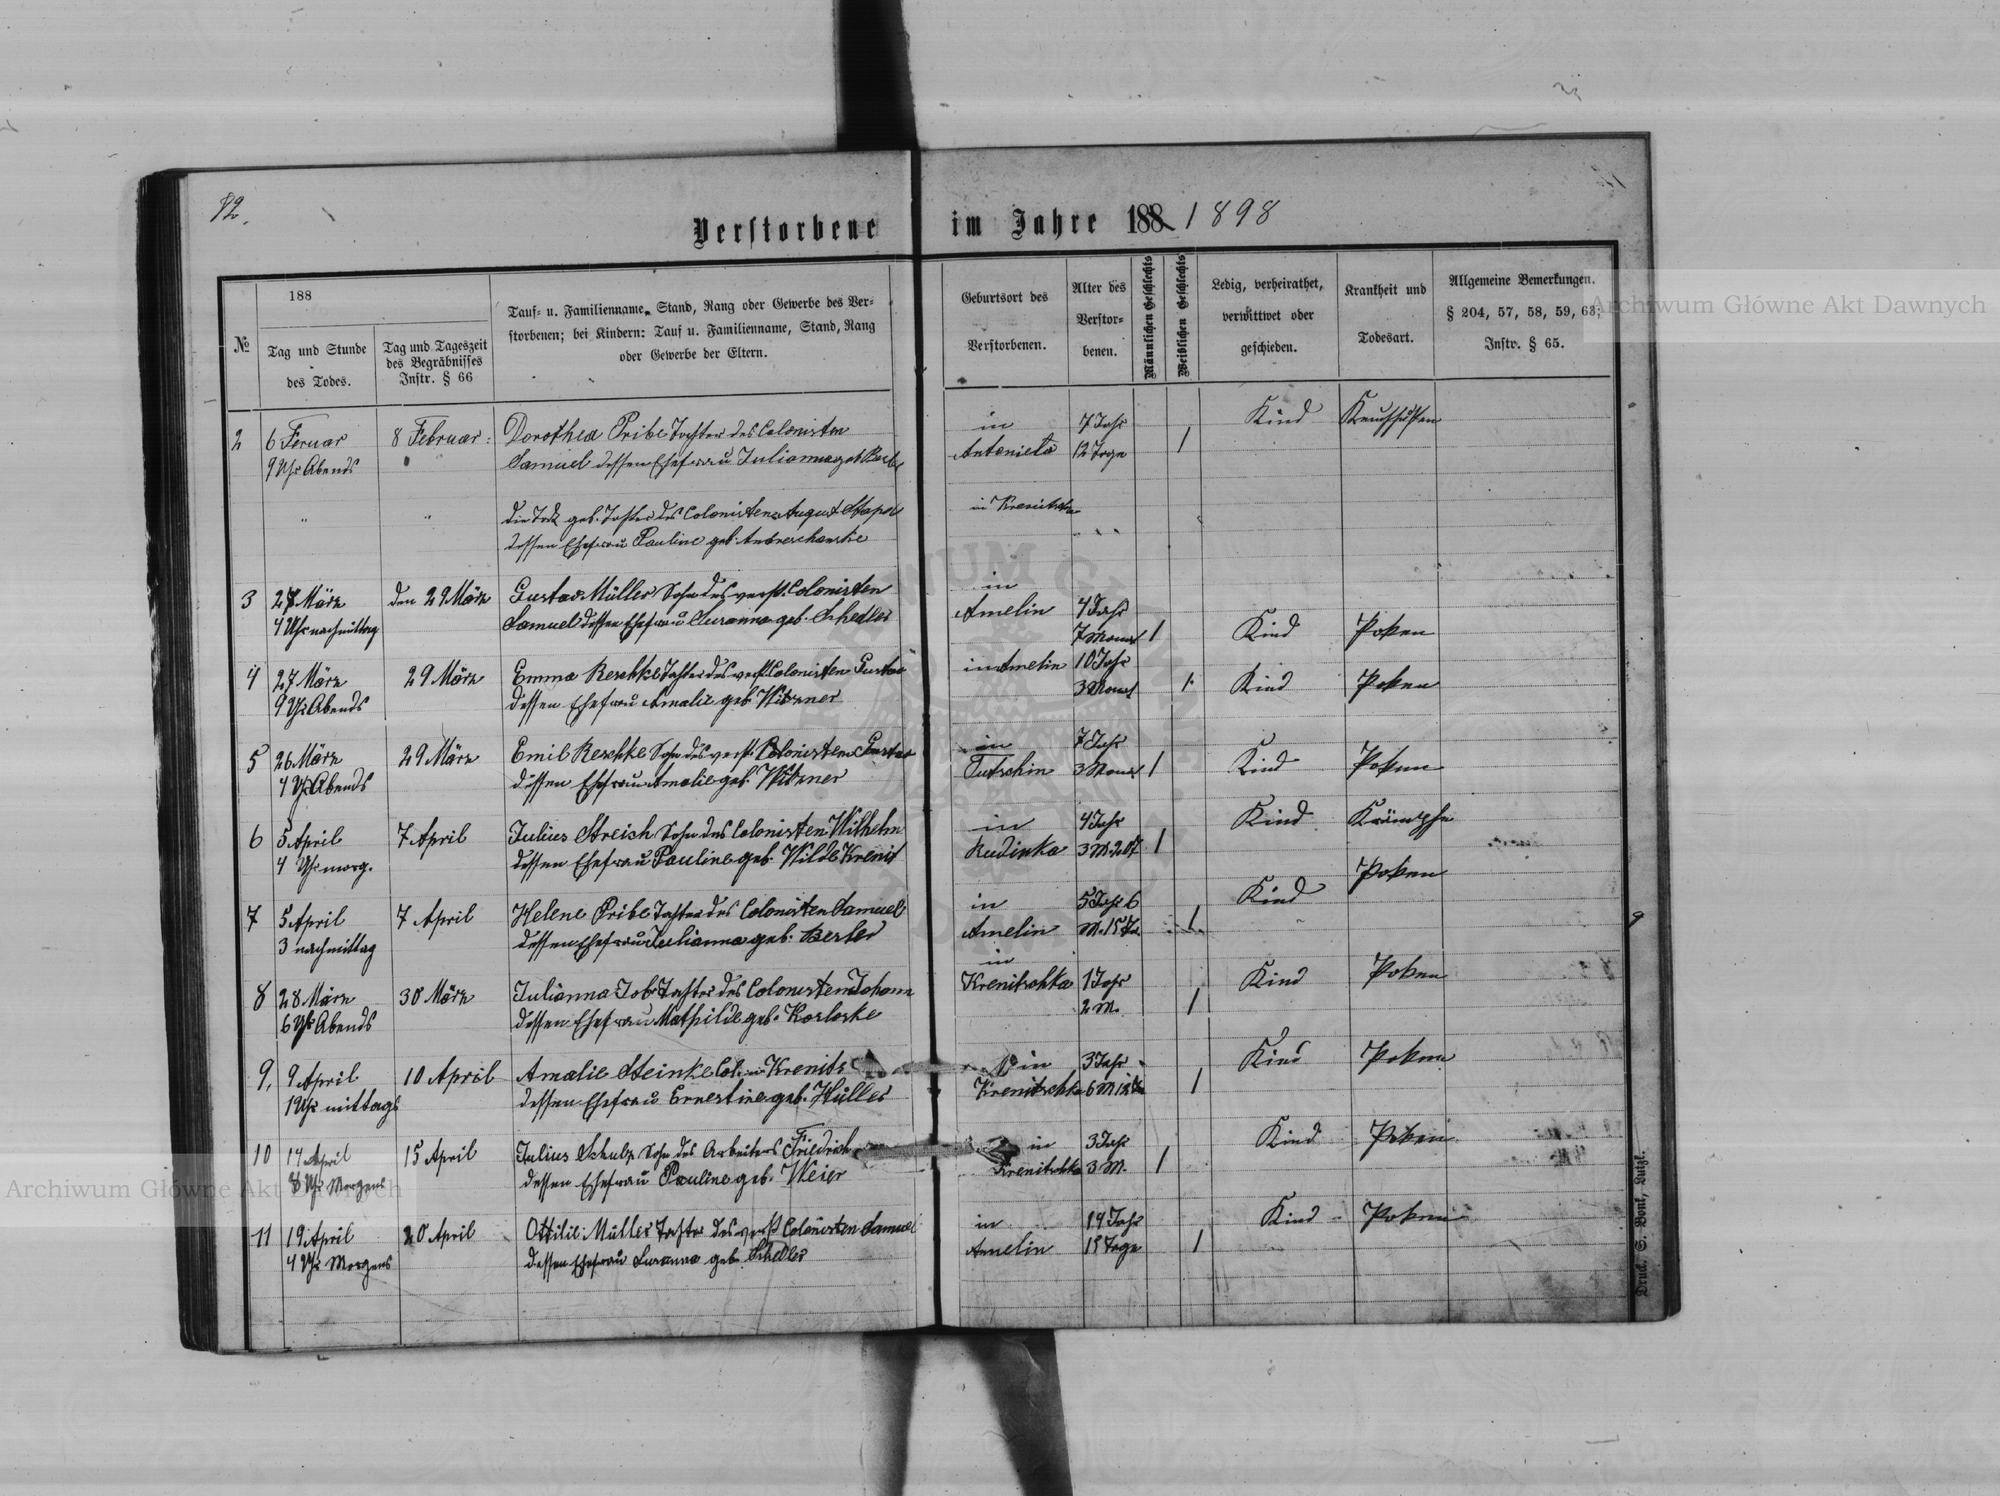 82.
Verstorbene im Jahre 188 1898
№
188
Tag und Stunde
des Todes.
Tag und Tageszeit
des Begräbnisses
Instr. § 66
Tauf- u. Familienname, Stand, Rang oder Gewerbe des Ver-
storbenen; bei Kindern: Tauf u. Familienname, Stand, Rang
oder Gewerbe der Eltern.
Geburtsort des
Verstorbenen.
Alter des
Verstor-
benen.
Männlichen Geschlechts
Weiblichen Geschlechts
Ledig, verheirathet,
verwittwet oder
geschieden.
Krankheit und
Todesart.
Allgemeine Bemerkungen.
§ 204, 57, 58, 59, 63;
Instr. § 65.
2 6 Feruar 8 Februar Dorothea Pribe Tochter des Colonisten in 7 Jahr Kind
9 Uhr Abends Samuel dessen Ehefrau Julianna geb. Antonieta 12 Tage 1
geb. Tochter des Colonisten August in
dessen Ehefrau Pauline geb.
3 27 März den 29 März Gustav Müller Sohn des verst. Colonisten in
4 Uhr nachmittag Samuel dessen Ehefrau Susanna geb. Schedler Amelin 4 Jahr
7 Monat 1 Kind Poken
4 27 März 29 März Emma Reschke Tochter des verst. Colonisten Gustav in Amelin 10 Jahr
9 Uhr Abends dessen Ehefrau Amalie geb. Witzner 3 Monat 1 Kind Poken
5 26 März 29 März Emil Reschke Sohn des verst. Colonisten Gustav in 7 Jahr
4 Uhr Abends dessen Ehefrau Amalie geb. Witzner Tutschin 3 Monat 1 Kind Poken
6 5 April 7 April Julius Streich Sohn des Colonisten Wilhelm in 4 Jahr Kind Krämpfe
4 Uhr morg. dessen Ehefrau Pauline geb. Wilde Krenit Rudinka 3 M. 20 T. 1
Poken
7 5 April 7 April Helene Pribe Tochter des Colonisten Samuel in 5 Jahr 6 Kind
3 nachmittag dessen Ehefrau Julianna geb. Berler Amelin M. 15 1
8 28 März 30 März Julianna Job Tochter des Colonisten Johann in Krenitschka 1 Jahr Kind Poken
6 Uhr Abends dessen Ehefrau Mathilde geb. Korloske 2 M. 1
9. 9 April 10 April Amalie Steinke Col. in Krenits in 3 Jahr Kind Poken
1 Uhr mittags dessen Ehefrau Ernestine geb. Hüller Krenitschka 6 M 1
10 14 April 15 April Julius Schulz Sohn des Arbeiters Friedrich in 3 Jahr Kind Poken
8 Uhr Morgens dessen Ehefrau Pauline geb. Weier Krenitschka 3 M. 1
11 19 April 20 April Ottilie Müller Tochter des verst. Colonisten Samuel in 14 Jahr Kind Poken
4 Uhr Morgens dessen Ehefrau Susanna geb. Schedler Amelin 15 Tage 1
Druck. S. Bonk, Lutzk.
Archiwum Główne Akt Dawnych
Archiwum Główne Akt Dawnych